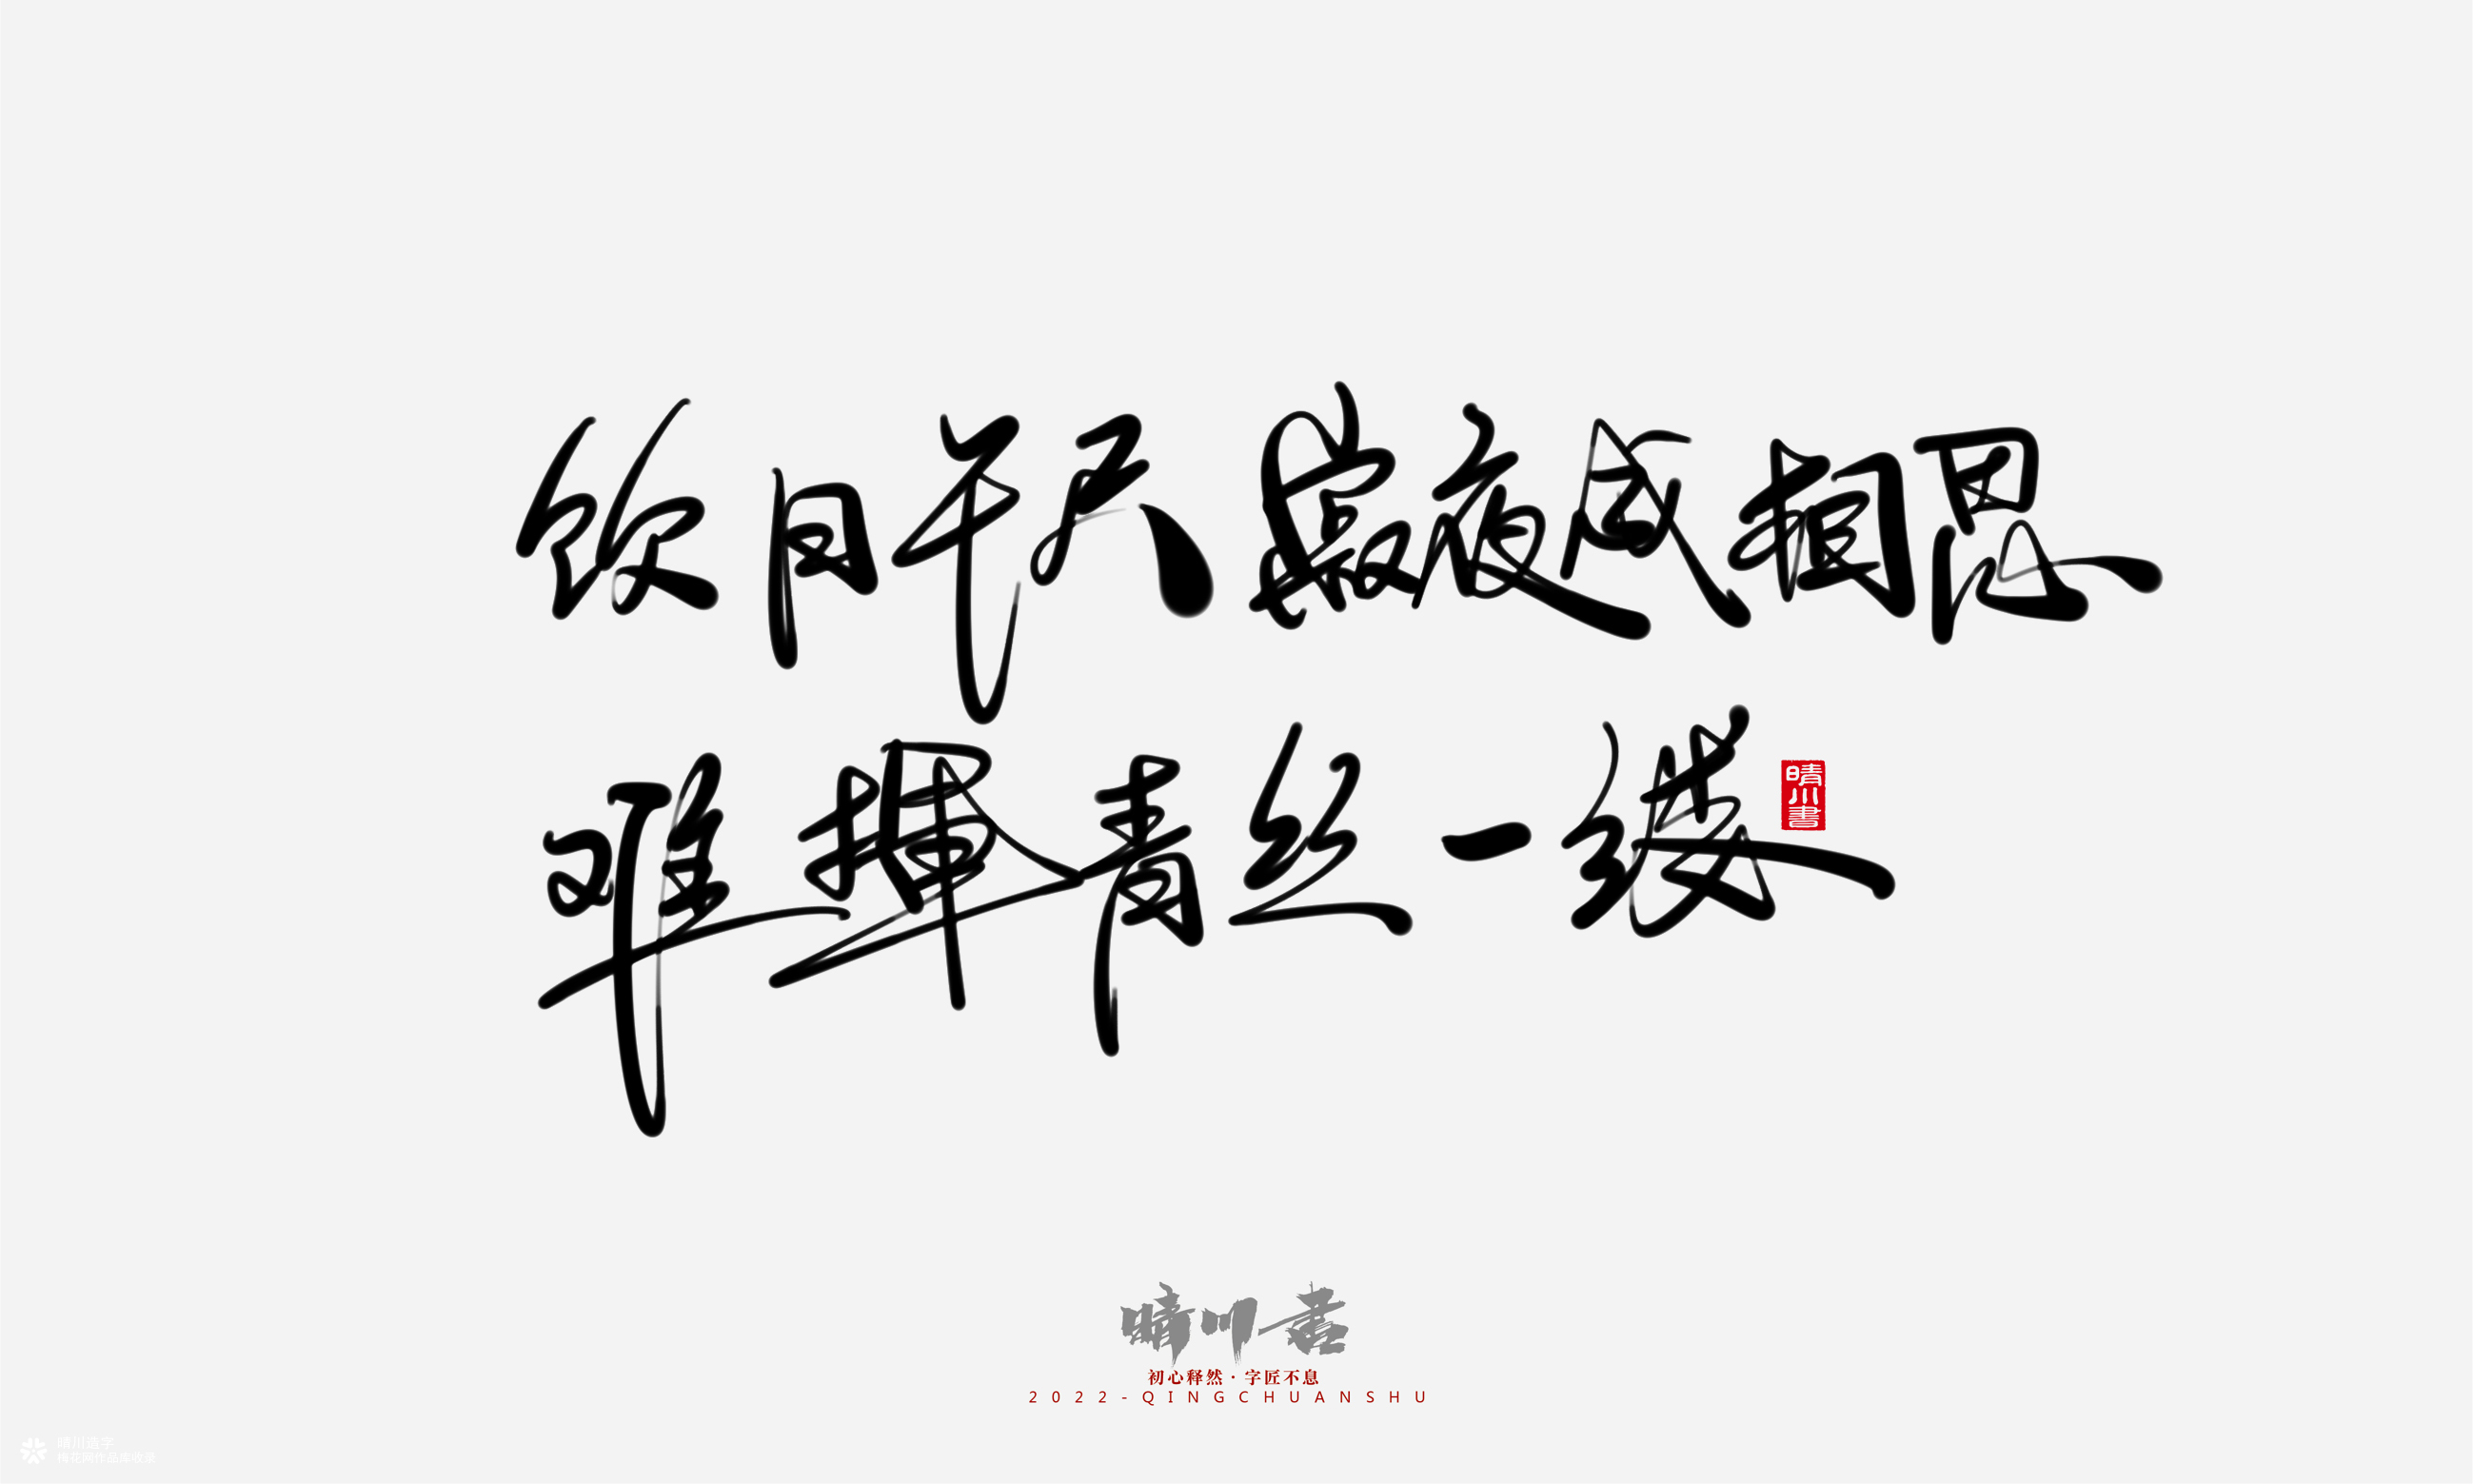 饮月千尺 寂夜感相思
难挥青丝一缕
晴川書
晴川書
初心释然·字匠不息
2022-QINGCHUANSHU
晴川造字
梅花网作品库收录